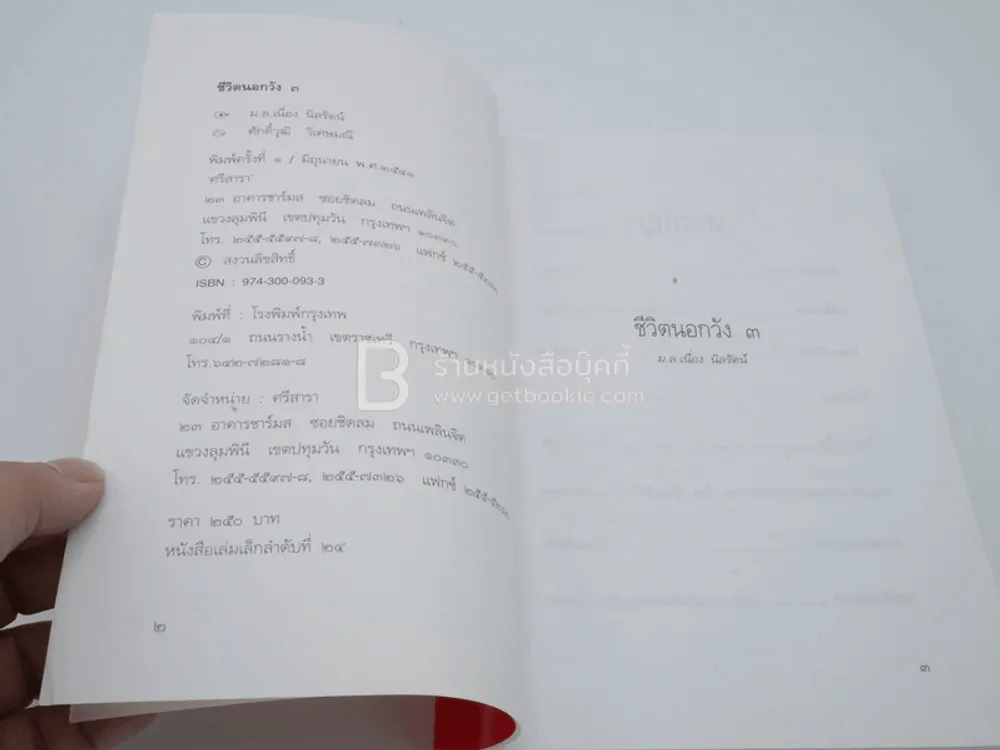 ชีวิตนอกวัง ๓
ม.ล.เนื่อง นิลรัตน์
ศักดิ์วุฒิ วิเศษมณี
พิมพ์ครั้งที่ ๑ / มิถุนายน พ.ศ.๒๕๔๑
'ศรีสารา'
๒๓ อาคารชาร์มส ซอยชิดลม ถนนเพลินจิต
แขวงลุมพินี เขตปทุมวัน กรุงเทพฯ ๑๐๓๓๐
โทร. ๒๕๕-๕๕๙๗-๘, ๒๕๕-๗๓๒๖ แฟกซ์
© สงวนลิขสิทธิ์
ISBN : 974-300-093-3
พิมพ์ที่ : โรงพิมพ์กรุงเทพ
๑๐๔/๑ ถนนรางน้ำ เขตราชเทวี กรุงเทพฯ
โทร.๖๔๒-๗๒๘๑-๘
จัดจำหน่าย : ศรีสารา
๒๓ อาคารชาร์มส ซอยชิดลม ถนนเพลินจิต
แขวงลุมพินี เขตปทุมวัน กรุงเทพฯ ๑๐๓๓๐
โทร. ๒๕๕-๕๕๙๗-๘, ๒๕๕-๗๓๒๖ แฟกซ์
ราคา ๒๕๐ บาท
หนังสือเล่มเล็กลำดับที่ ๒๔
๒
ชีวิตนอกวัง ๓
ม.ล.เนื่อง นิลรัตน์
๓
B ร้านหนังสือบุ๊คกี้
www.getbookie.com